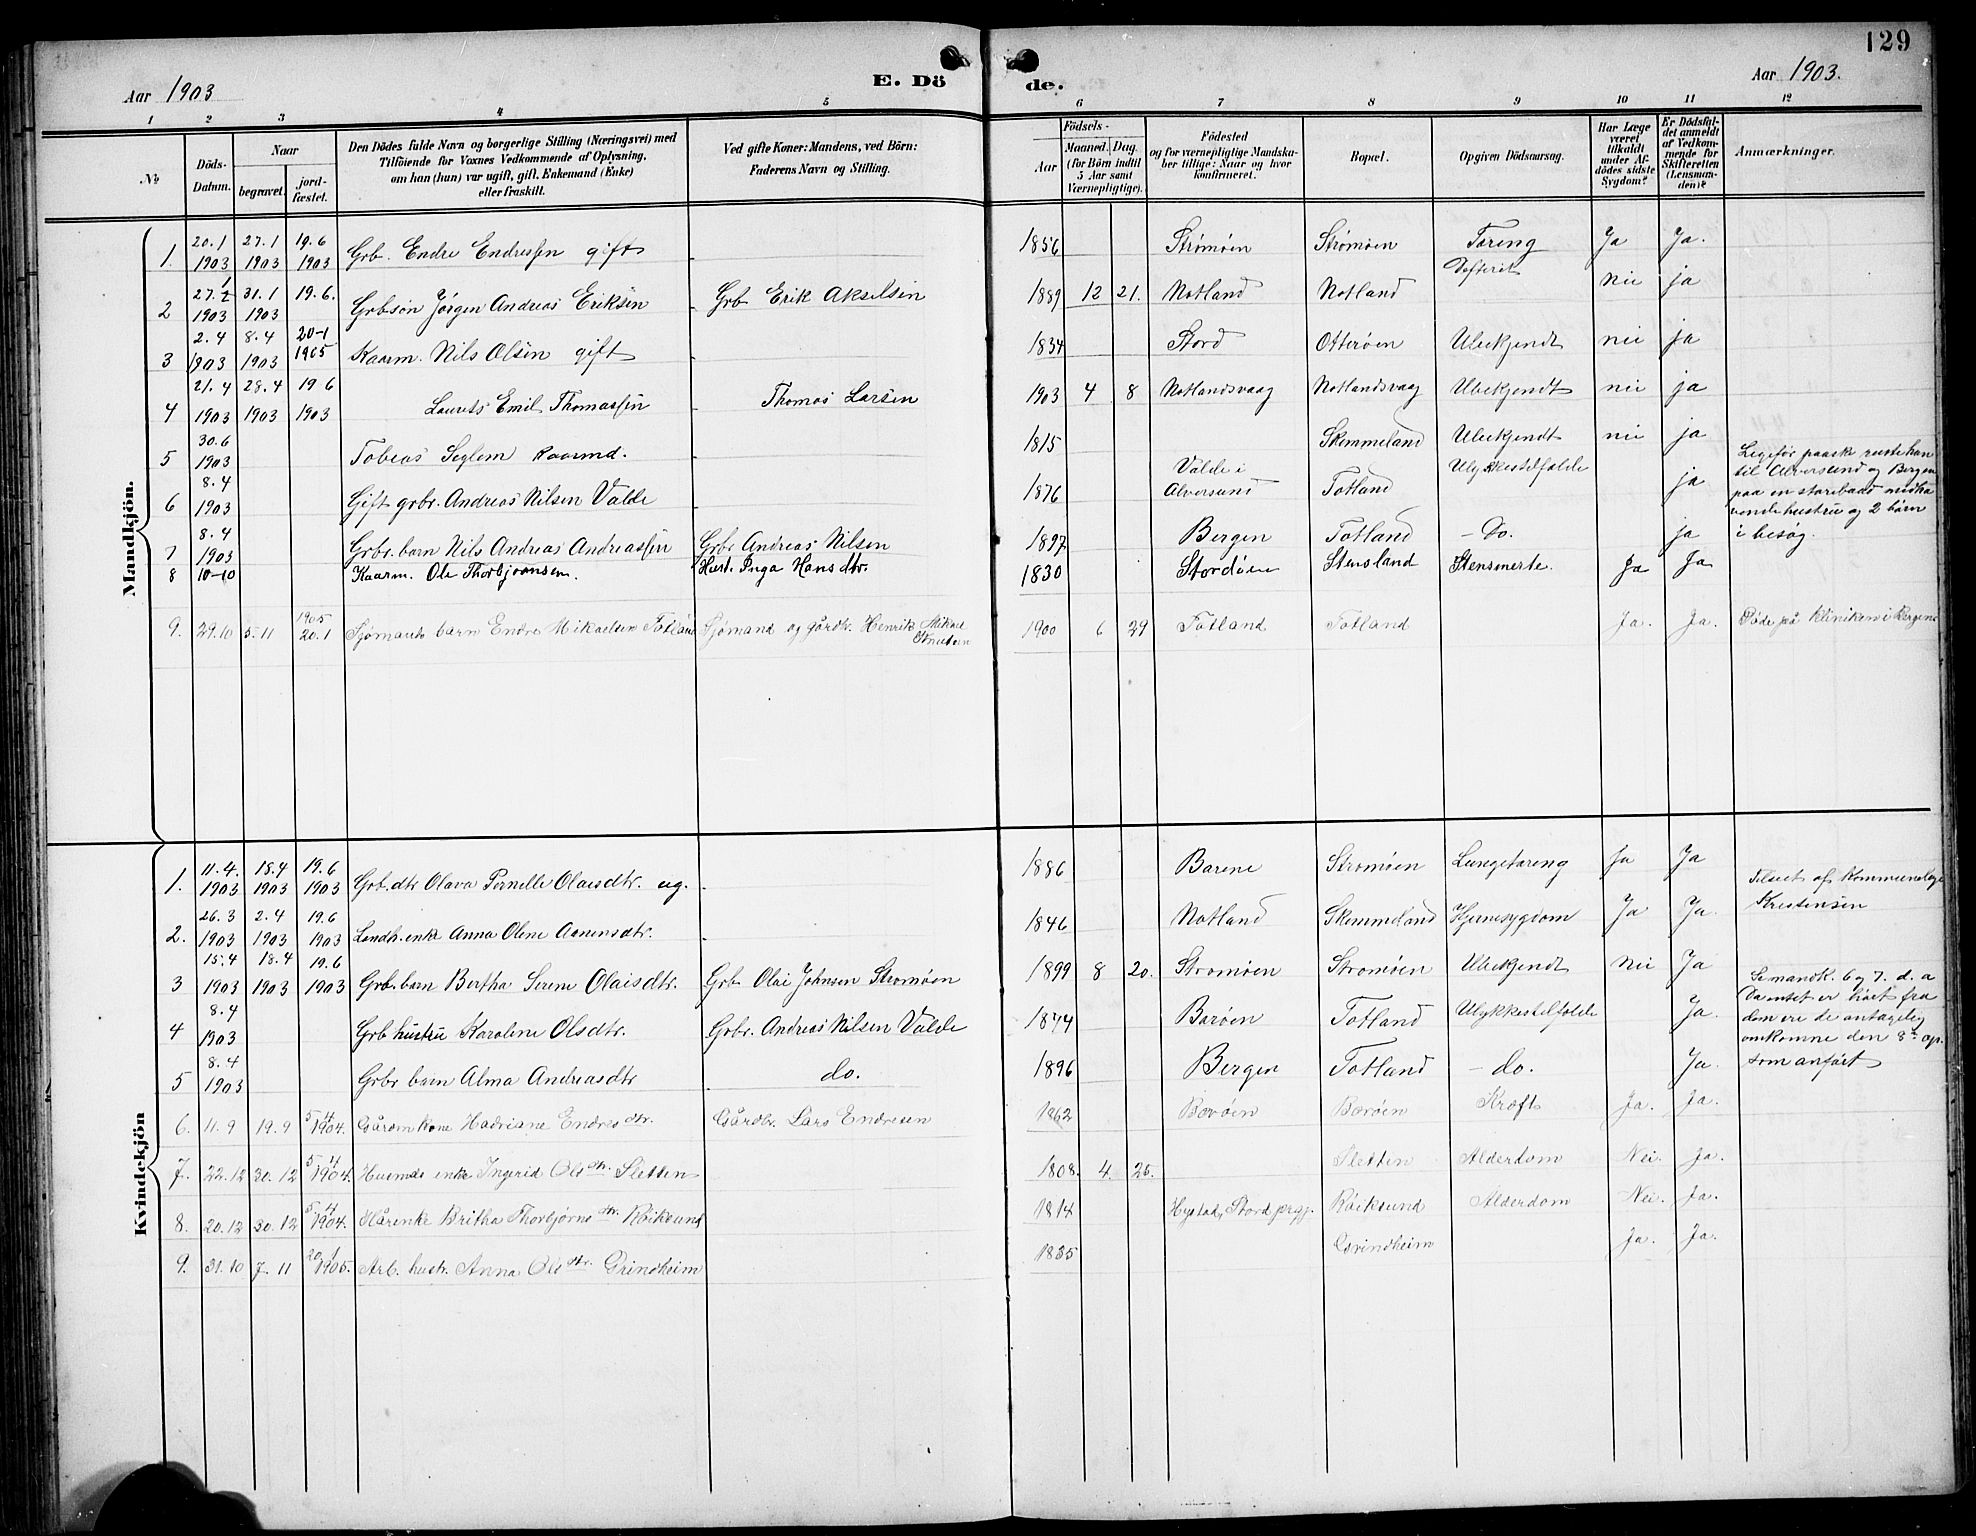 129
Aar 1903
E. Dö de.
Aar 1903.
1 2 3 4 5 6 7 8 9 10 11 12
№
Döds-Datum.
Naar
begravet.
jordfæstet.
Den Dödes fulde Navn og borgerlige Stilling (Næringsvei) med
Tilföiende for Voxnes Vedkommende af Oplysning,
om han (hun) var ugift, gift, Enkemand (Enke)
eller fraskilt.
Ved gifte Koner: Mandens, ved Börn:
Faderens Navn og Stilling.
Födsels-
Aar
Maaned. Dag.
(for Börn indtil
5 Aar samt
Værnepligtige).
Födested
og for værnepligtige Mandskaber tillige: Naar og hvor
konfirmeret.
Bopæl.
Opgiven Dödsaarsag.
Har Læge
været
tilkaldt
under Afdödes sidste
Sygdom?
Er Dödsfaldet anmeldt
af Vedkommende for
Skifteretten
(Lensmanden)?
Anmærkninger.
Mandkjön.
1. 20.1 1903 27.1 1903 19.6 1903 Grb. Endre Endressen gift 1856 Strømøen Strømøen Tæring Ja Ja.
2 27.1 1903 31.1 1903 19.6. Grbsøn Jørgen Andreas Eriksen Grb Erik Akselsen 1889 12 21. Notland Notland Defterit nei ja
3 2.4 1903 8.4 1903 20-1 1905 Kaarm. Nils Olsen gift 1834 Stord Otterøen Ubekjendt nei ja
4 21.4 1903 28.4 1903 19.6 1903 Laurits Emil Thomassen Thomas Larsen 1903 4 8 Notlandsvaag Notlandsvaag Ubekjendt nei ja
5 30.6 1903 Tobias Seglem Kaarmd. 1815 Skemmeland Ubekjendt nei ja
6 8.4 1903 Gift grbr. Andreas Nilsen Valde 1876 Valde i Alversund Totland Ulykkestilfælde ja
Ligefør paaske reiste han
til Alversund og Bergen
paa en storebaad medha
vende hustru og 2 børn
i besøg.
7 8.4 1903 Grbr. barn Nils Andreas Andreassen Grbr Andreas Nilsen 1897 Bergen Totland – Do. ja
8 10-10 Kaarm. Ole Thorbjørnsen. Hust. Inga Hansdtr. 1830 Stordøen Stensland Stensmerte. Ja Ja
9. 29.10 5.11 1905 20.1 Sjømands barn Endre Mikaelsen Totland Sjømand og gårdbr. Henrik Mikael Knutsen 1900 6 29 Totland Totland Ja. Ja. Døde på kliniken i Bergen
Kvindekjön
1. 11.4. 1903 18.4 1903 19.6 1903 Grb.dtr Olava Pernelle Olaisdtr. ug. 1886 Barene Strømøen Lungetæring Ja Ja
Tilseet af Kommunelæge
Kristensen
2. 26.3 1903 2.4 1903 19.6 1903 Landh. enke Anna Olene Aanensdtr. 1846 Notland Skemmeland Hjernesygdom Ja Ja.
3 15.4 1903 18.4 1903 19.6 1903 Grb. barn Bertha Serene Olaisdtr. Grb Olai Johnsen Strømøen 1899 8 20. Strømøen Strømøen Ubekjendt nei Ja
4 8.4 1903 Grb hustru Karoline Olsdtr. Grbr. Andreas Nilsen Valde 1874 Barøen Totland Ulykkestilfælde Ja.
Se mandk. 6 og 7. d. a
Da intet er hørt fra
dem ere de antagelig
omkomne den 8de ap.
som anført
5 8.4 1903 Grbr barn Alma Andreasdtr do. 1896 Bergen Totland – do. Ja.
6. 11.9 19.9 5/4 1904. Gårdm kone Hadriane Endresdtr. Gårdbr. Lars Endresen 1862 Børøen Børøen Kræft Ja. Ja.
7. 22.12 30.12 5/4 1904. Huusmds enke Ingerid Olsdtr. Sletten 1808. 4. 25. Sletten Alderdom Nei. Ja.
8. 20.12 30.12 5/4 1904. Kårenke Britha Thorbjørnsdtr. Røiksund 1814 Hystad, Stord prgj. Røiksund Alderdom Nei. Ja.
9. 31.10 7.11 20/1 1905. Arb. hustr. Anna Olsdtr. Grindheim 1835 Grindheim Ja. Ja.